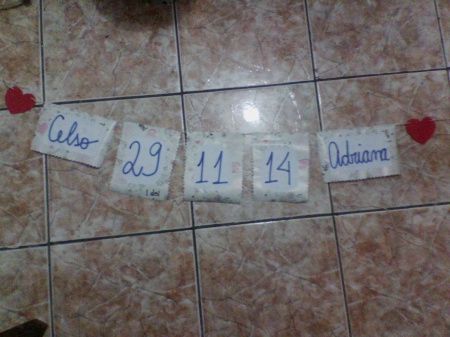 Celso 29 11 14 Adriana